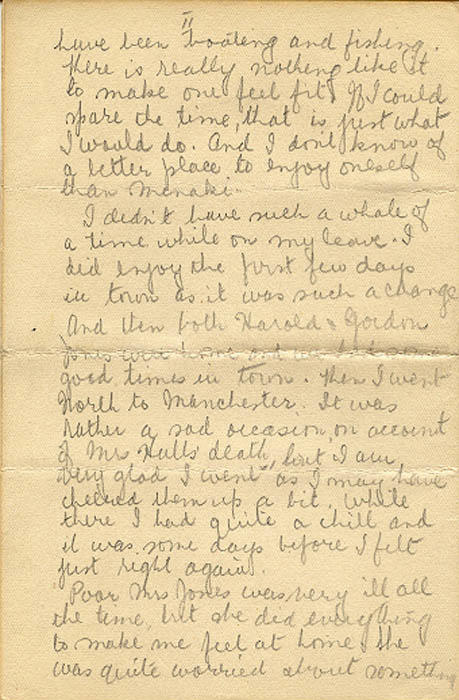 II
have been boating and fishing.
There is really nothing like it
to make one feel fit. If I could
spare the time, that is just what
I would do. And I don't know of
a better place to enjoy oneself
than Minaki.
I didn't have such a whale of
a time while on my leave. I
did enjoy the first few days
in town as it was such a change
And then both Harold & Gordon
Jones were home and we had some
good times in town. Then I went
North to Manchester. It was
rather a sad occasion, on account
of Mrs Hulls' death, but I am
very glad I went, as I may have
cheered them up a bit. While
there I had quite a chill and
it was some days before I felt
just right again.
Poor Mrs Jones was very ill all
the time, but she did everything
to make me feel at home. She
was quite worried about something